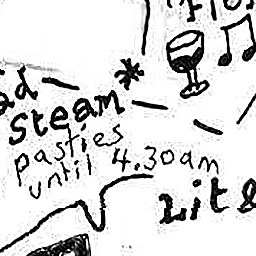 steam*
pasties
until 4.30am
Lit &